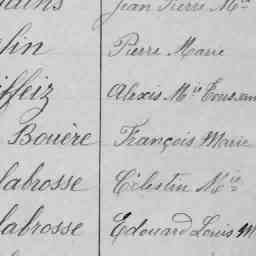 Jean Pierre M.ie
lin Pierre Marie
iffleiz Alexis M.ie Toussain
Bouëre François Marie
labrosse Célestin M.ie
labrosse Edouard Louis M